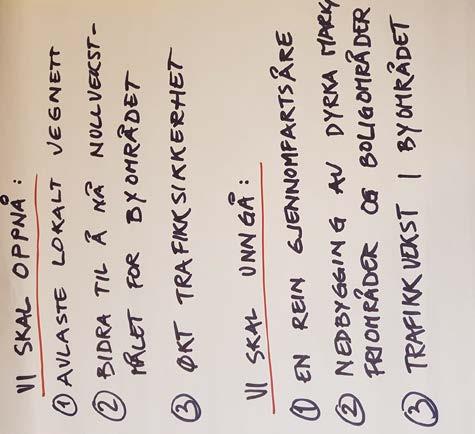 VI SKAL OPPNÅ:
① AVLASTE LOKALT VEGNETT
② BIDRA TIL Å NÅ NULLVEKST-
MÅLET FOR BYOMRÅDET
③ ØKT TRAFIKKSIKKERHET
VI SKAL UNNGÅ:
① EN REIN GJENNOMFARTSÅRE
② NEDBYGGING AV DYRKA MARK,
FRIOMRÅDER OG BOLIGOMRÅDER
③ TRAFIKKVEKST I BYOMRÅDET